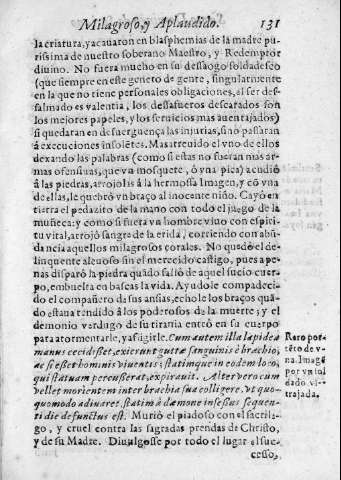 Milagroso, y Aplaudido. 131
la criatura, y acauaron en blasphemias de la madre pu-
rissima de nuestro soberano Maestro, y Redemptor
diuino. No fuera mucho en su desaogo soldadesco
(que siempre en este genero de gente, singularmente
en la que no tiene personales obligaciones, el ser des-
falmado es valentia, los dessafueros descarados son
los mejores papeles, y los seruicios mas auentajados)
si quedaran en desuerguença las injurias, si no passaran
á execuciones insolẽtes. Mas atreuido el vno de ellos
dexando las palabras (como si estas no fueran mas ar-
mas ofensiuas, que vn mosquete, ò vna pica) acudiò
à las piedras, arrojolas à la hermosa Imagen, y cõ vna
de ellas, le quebrò vn braço al inocente niño. Cayò en
tierra el pedazito de la mano con todo el juego de la
muñeca: y como si fuera vn hombre viuo con espiri-
tu vital, arrojò sangre de la erida, corriendo con abũ-
dancia aquellos milagrosos corales. No quedò el de-
linquente aleuoso sin el merecido castigo, pues ape-
nas disparò la piedra quãdo saliò de aquel sucio cuer-
po, embuelta en bascas la vida. Ayudole compadeci-
do el compañero de sus ansias, echole los braços quã-
do estaua rendido à los poderosos de la muerte; y el
demonio verdugo de su tirania entrò en su cuerpo
para atormentarle, y afligirle. Cum autem illa lapidea
manus cecidisset, exierunt guttæ sanguinis è brachio,
ac si esset hominis viuentis; statimque in eodem loco,
qui statuam percusserat, expirauit. Alter vero cum
vellet morientem inter brachia sua colligere, vt quo-
quomodo adiuaret, statim à dæmone insessus sequen-
ti die defunctus est. Muriò el piadoso con el sacrile-
go, y cruel contra las sagradas prendas de Christo,
y de su Madre. Diuulgosse por todo el lugar el sue-
cesso,
Raro por-
tẽto de v-
na Imagẽ
por vn sol
dado vl-
trajada.